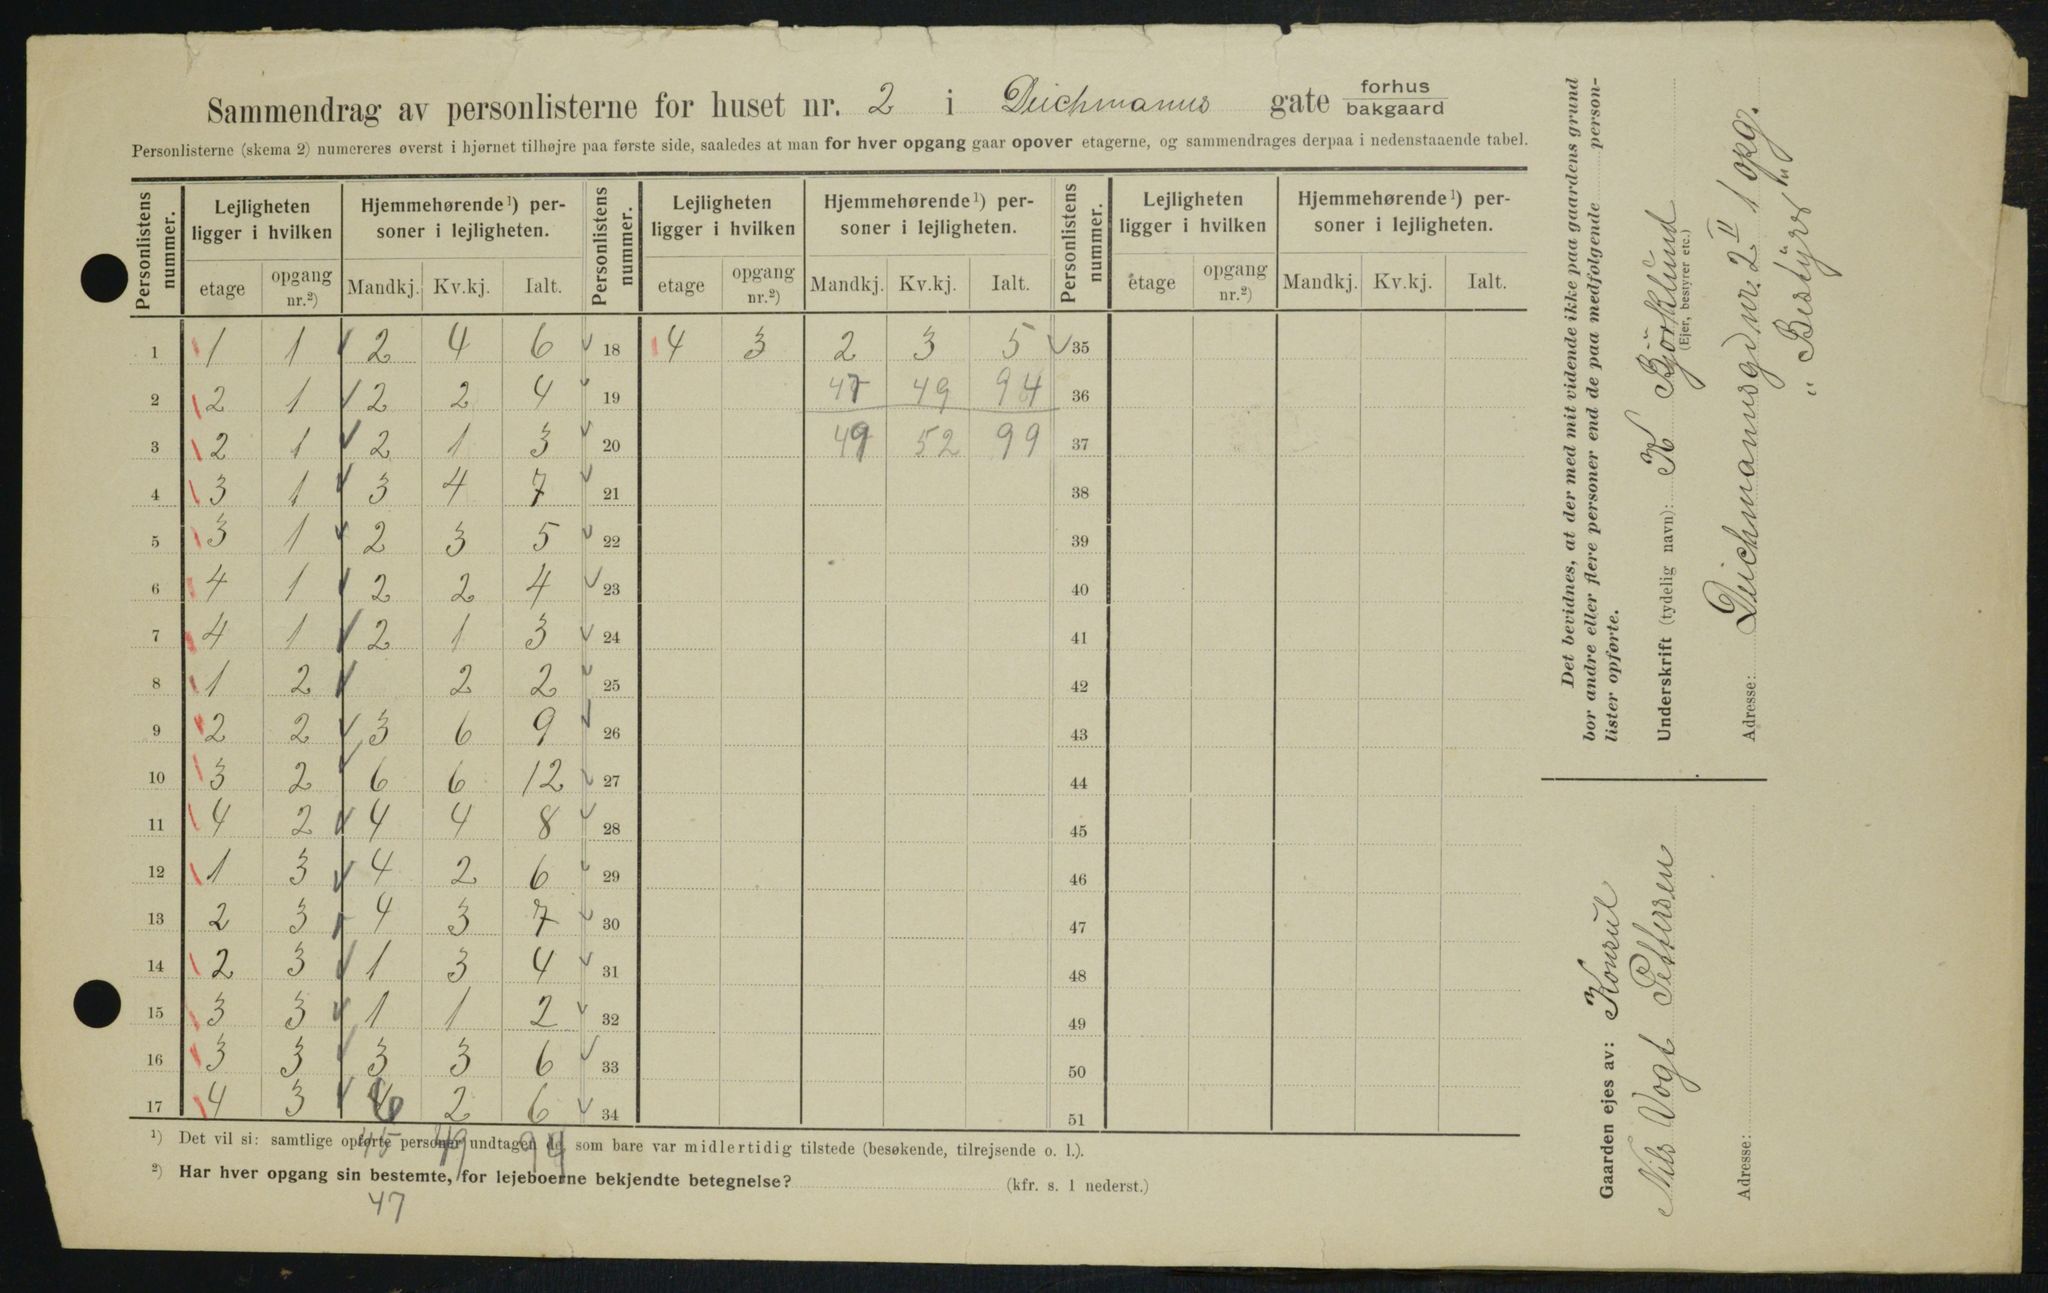 Sammendrag av personlisterne for huset nr. 2 i Deichmanns gate forhus bakgaard
Personlisterne (skema 2) numereres øverst i hjørnet tilhøjre paa første side, saaledes at man for hver opgang gaar opover etagerne, og sammendrages derpaa i nedenstaaende tabel.
Personlistens nummer. Lejligheten ligger i hvilken Hjemmehørende¹) personer i lejligheten. Personlistens nummer. Lejligheten ligger i hvilken Hjemmehørende¹) personer i lejligheten. Personlistens nummer. Lejligheten ligger i hvilken Hjemmehørende¹) personer i lejligheten.
etage opgang nr.²) Mandkj. Kv.kj. Ialt. etage opgang nr.²) Mandkj. Kv.kj. Ialt. etage opgang nr.²) Mandkj. Kv.kj. Ialt.
1 1 1 2 4 6 18 4 3 2 3 5 35
2 2 1 2 2 4 19 47 49 94 36
3 2 1 2 1 3 20 49 52 99 37
4 3 1 3 4 7 21 38
5 3 1 2 3 5 22 39
6 4 1 2 2 4 23 40
7 4 1 2 1 3 24 41
8 1 2 2 2 25 42
9 2 2 3 6 9 26 43
10 3 2 6 6 12 27 44
11 4 2 4 4 8 28 45
12 1 3 4 2 6 29 46
13 2 3 4 3 7 30 47
14 2 3 1 3 4 31 48
15 3 3 1 1 2 32 49
16 3 3 3 3 6 33 50
17 4 3 2 6 34 51
45 49 94
¹) Det vil si: samtlige opførte personer undtagen de, som bare var midlertidig tilstede (besøkende, tilrejsende o. l.).
²) Har hver opgang sin bestemte, for lejeboerne bekjendte betegnelse? (kfr. s. 1 nederst.)
47
Det bevidnes, at der med mit vidende ikke paa gaardens grund
bor andre eller flere personer end de paa medfølgende person-
lister opførte.
Underskrift (tydelig navn): K Björklund
(Ejer, bestyrer etc.)
Adresse: Deichmannsgd nr. 2 II 1 opg.
"Bestyrer"
Gaarden ejes av: Konsul
Nils Vogt Pettersen
Adresse: